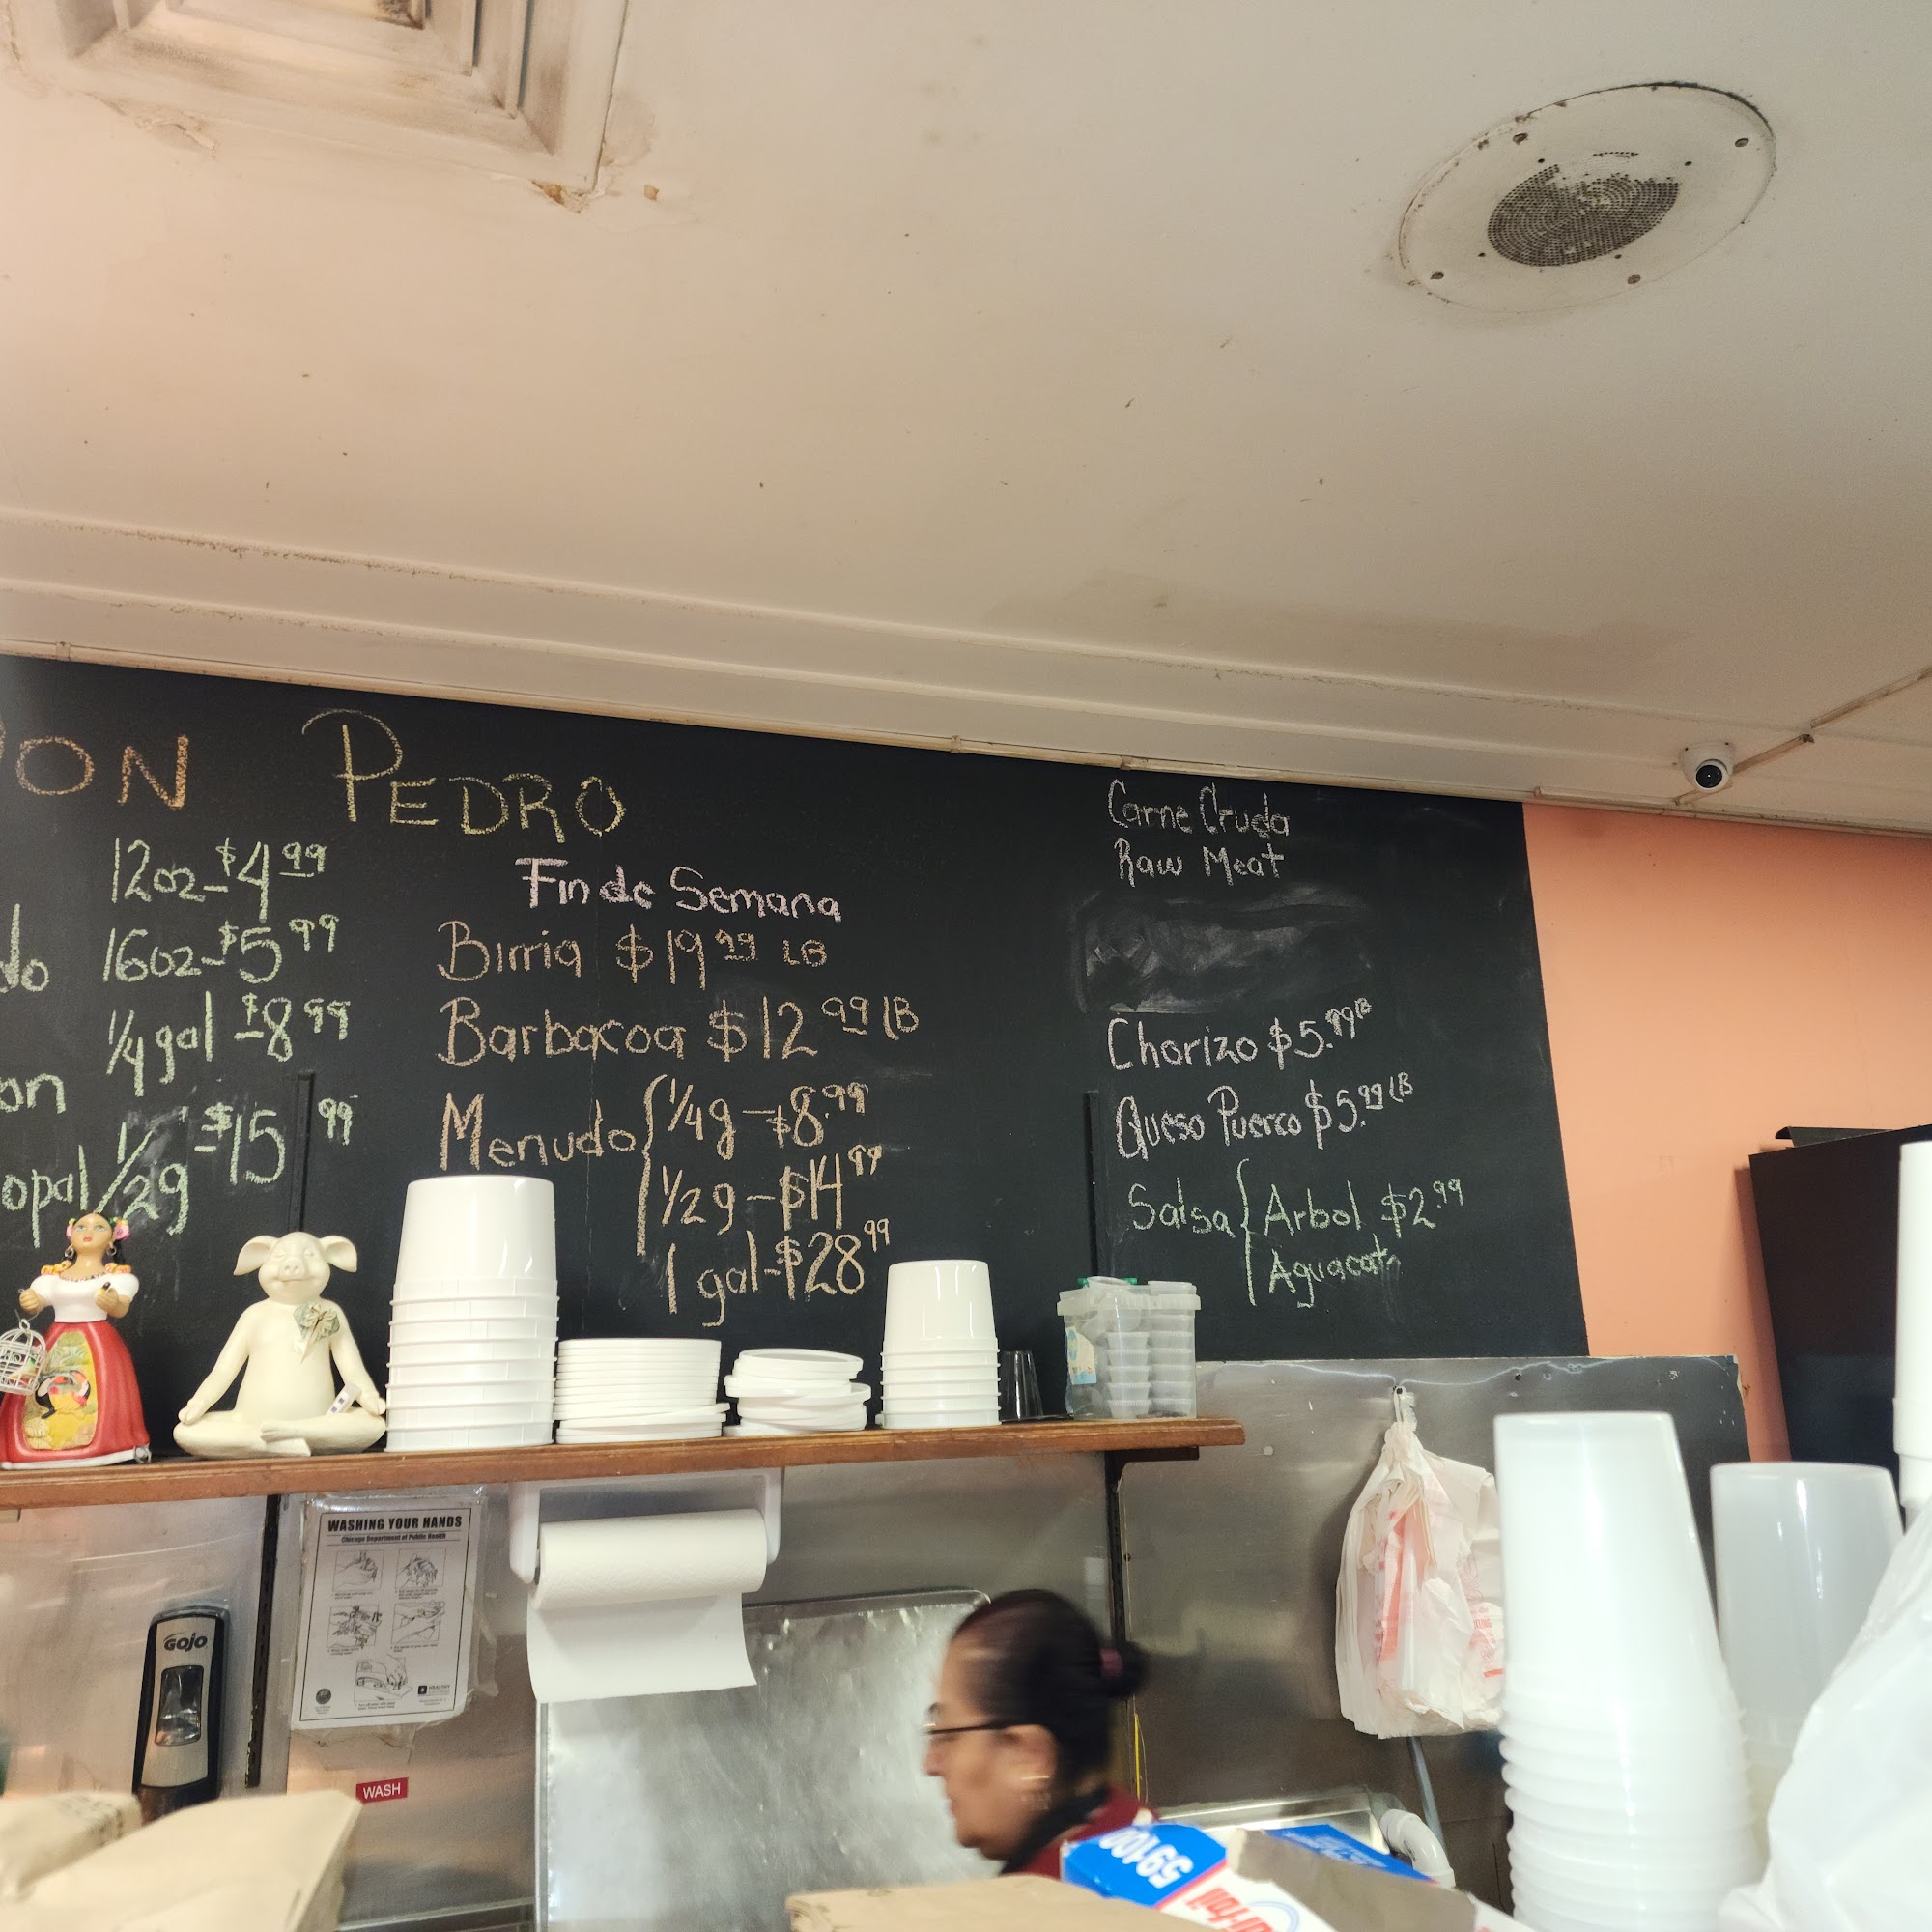 ON PEDRO
12oz-$4 99
do 16oz-$5 99
1/4 gal $8 99
on
opal 1/2g -$15 99
Fin de Semana
Birria $19 99 LB
Barbacoa $12 99 LB
Menudo { 1/4g - $8.99
1/2g - $14 99
1 gal - $28 99
Carne Cruda
Raw Meat
Chorizo $5.99 LB
Queso Puerco $5.99 LB
Salsa { Arbol $2.99
Aguacate
WASHING YOUR HANDS
Chicago Department of Public Health
GOJO
WASH
59100